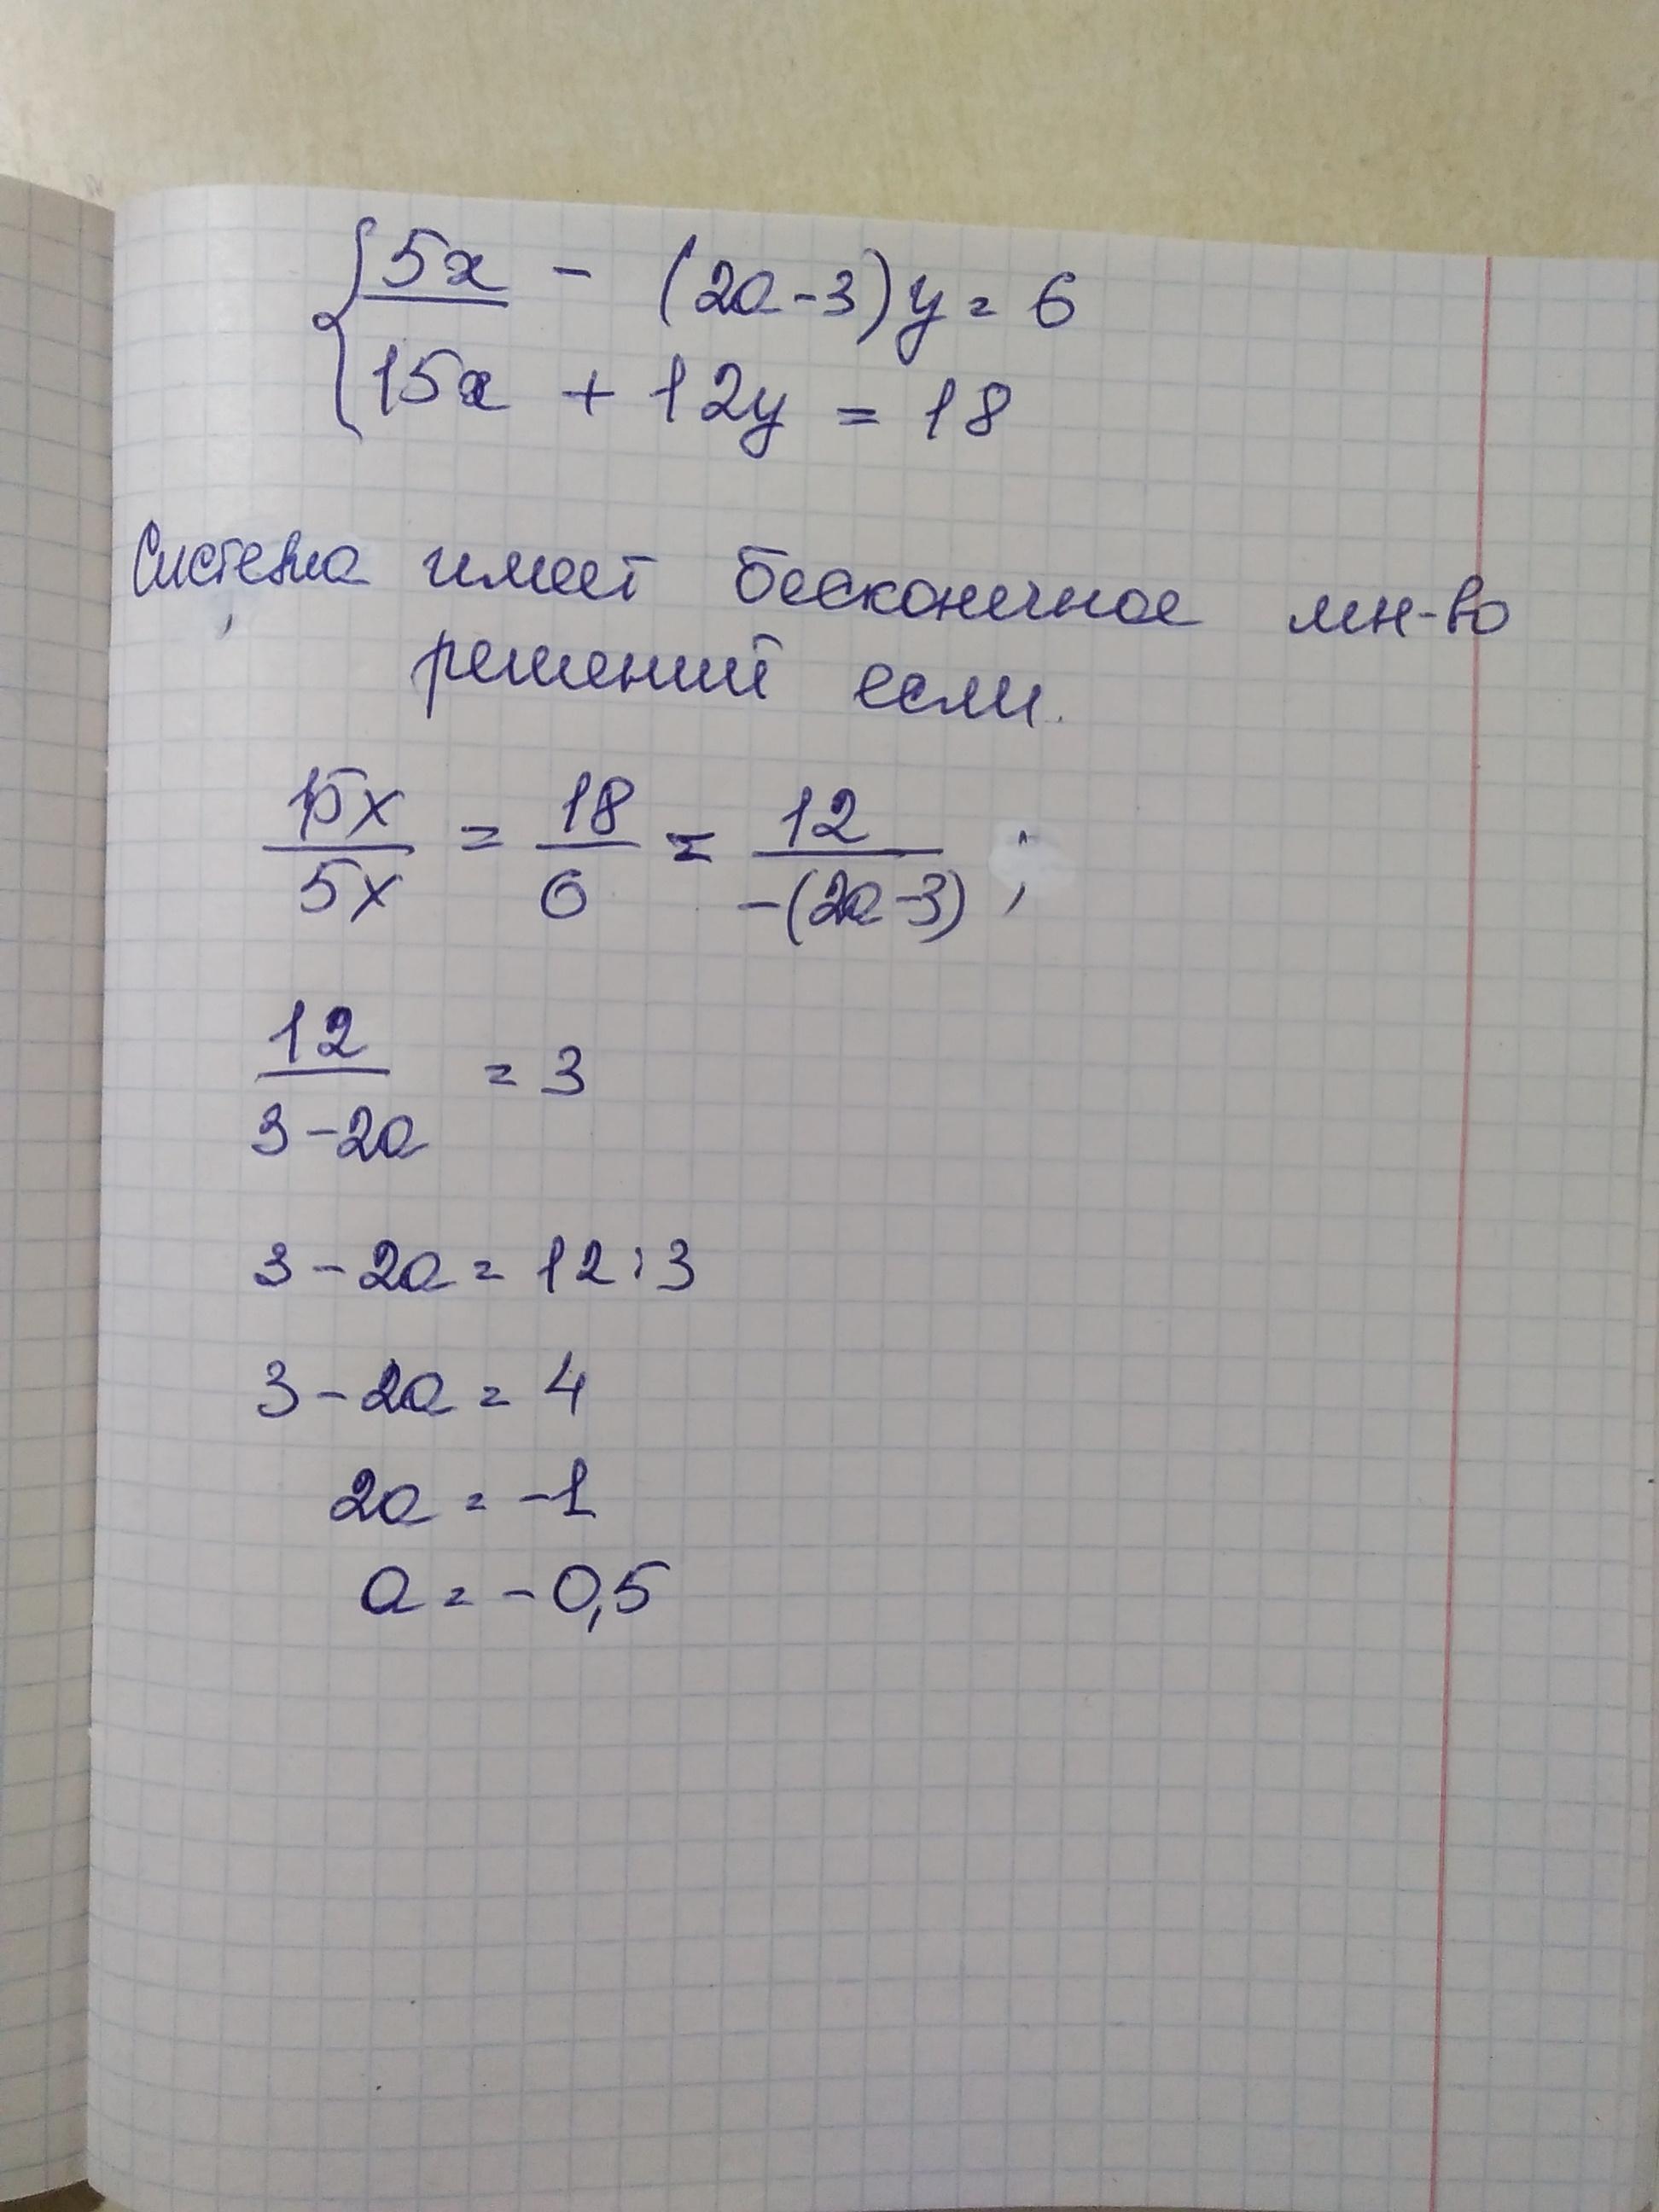 5x - (2a-3)y = 6
15x + 12y = 18
Система имеет бесконечное мн-во
решений если.
15x/5x = 18/6 = 12/-(2a-3) ;
12/3-2a = 3
3-2a = 12:3
3-2a = 4
2a = -1
a = -0,5